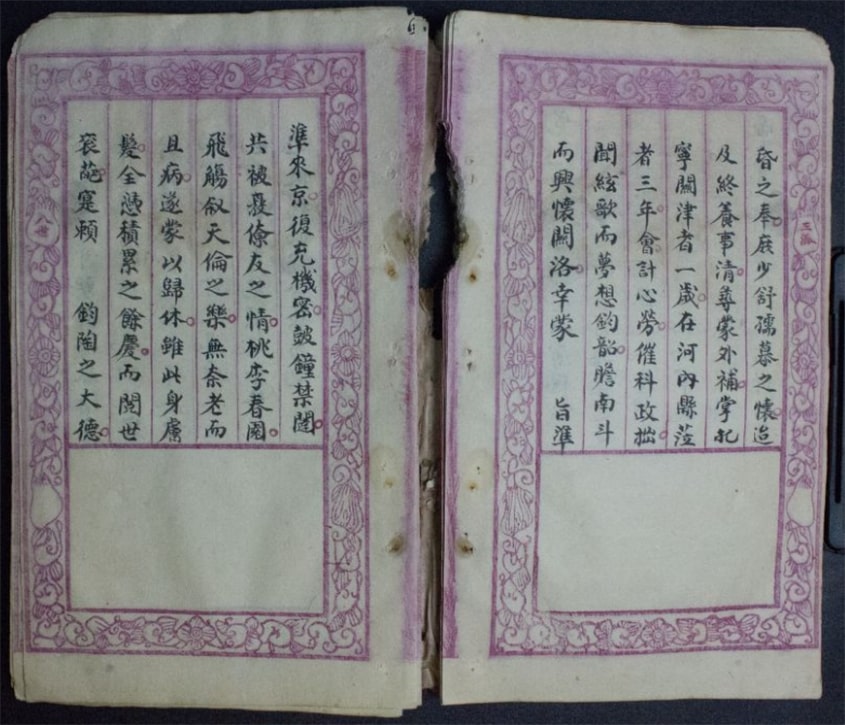 昏之奉庶少舒孺慕之懷迨
及終養事清蓴蒙外補掌北
寧關津者一歲在河內縣蒞
者三年會計心勞催科政拙
聞絃歌而夢想鈞韶瞻南斗
而興懷闕洛幸蒙 旨準
準來京復充機密鼓鐘禁闥
共被發僚友之情桃李春園
飛觴敘天倫之樂無奈老而
且病遂蒙以歸休雖此身膚
髮全憑積累之餘慶而閱世
裘葩寔賴 鈞陶之大德